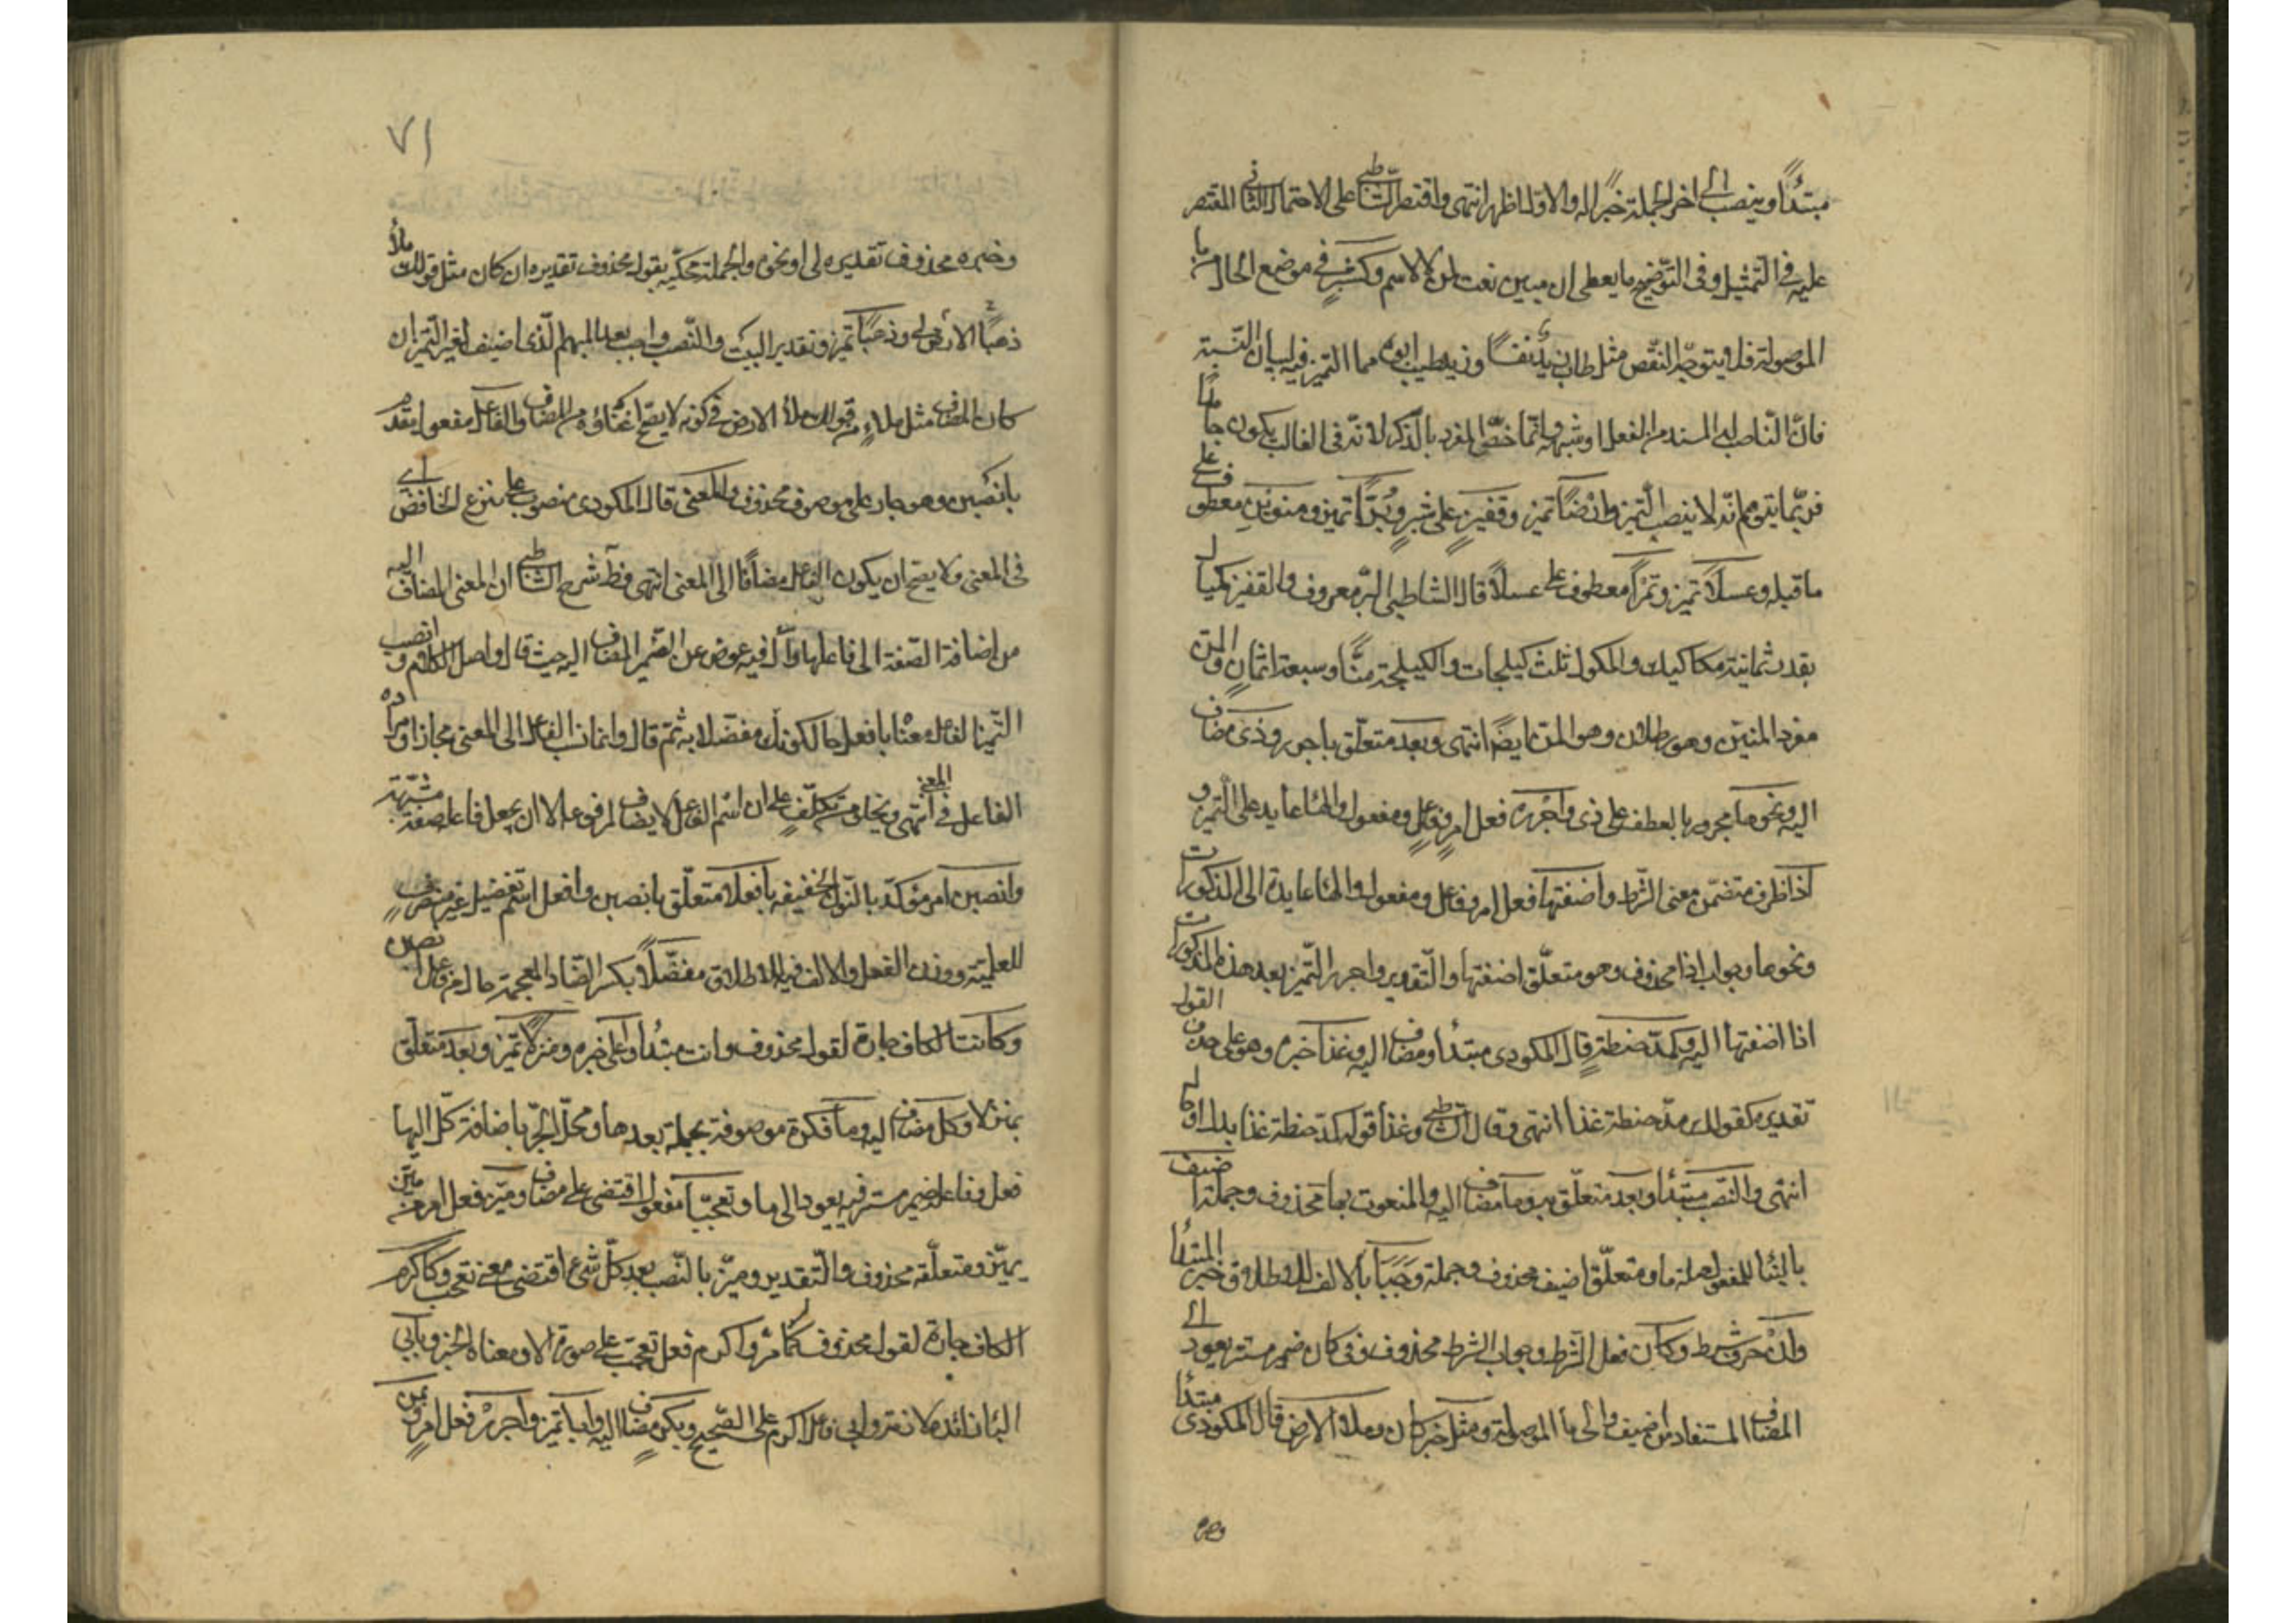 مبتدأ وينصب الى اخر الجملة خبرا له والاول اظهر انتهى واقتصر الشاطبي على الاحتمال الثاني المقتصر
عليه في التمثيل وفي التوضيح ما يعطي ان مبين نعت لمن لا لاسم وكشبر في موضع الحال من ما
الموصولة فلا يتوجه النقص مثل طاب زيد نفسا وزيد طيب ابوة مما التميز فيه لبيان النسبة
فان الناصب له المسند من الفعل او شبهه وانما خص المفرد بالذكر لانه في الغالب يكون جامدا
فربما يتوهم انه لا ينصب التميز وارضا تميز وقفيز على شبر وبرا تميز ومنوين معطوف على
ما قبله وعسلا تميز وتمرا معطوف على عسلا قال الشاطبي البر معروف والقفيز مكيال
بقدر ثمانية مكاكيك والمكوك ثلث كيلجات والكيلجة منا وسبعة اثمان والمن
مفرد المنين وهو رطلان وهو المن ايضا انتهى وبعد متعلق باجرر وذي مضاف
اليه ونحوها مجرور بالعطف على ذي واجرره فعل امر وفاعل ومفعول والهاء عايد على التميز و
اذا ظرف متضمن معنى الشرط واضفتها فعل امر وفاعل ومفعول والهاء عايدة الى المذكورات
ونحوها وجواب اذا محذوف وهو متعلق اضفتها والتقدير واجرر التميز بعد هذه المذكورات
اذا اضفتها اليه وكمد حنطة قال المكودي مبتدأ ومضاف اليه وغذا خبره وهو على حذف القول
تقديره كقولك مد حنطة غذا انتهى وقال الشاطبي وغذا قوله كمد حنطة غذا بدل او حال
انتهى والنصب مبتدأ وبعد متعلق به وما مضاف اليه والمنعوت بما محذوف وجملة اضيف
بالبناء للمفعول صلة ما ومتعلق اضيف محذوف وجملة وجبا بالالف للاطلاق خبر المبتدأ
وان حرف شرط وكان فعل الشرط وجواب الشرط محذوف وفي كان ضمير مستتر يعود الى
المضاف المستفاد من اضيف والى ما الموصولة ومثل خبر كان وملأ الارض قال المكودي مبتدأ
وخبره
٧١
وخبره محذوف تقديره لي او نحوه والجملة محكية بقول محذوف تقديره ان كان مثل قولك ملأ
الارض ذهبا لي وذهبا تميز وتقدير البيت والنصب واجب بعد المبهم الذي اضيف لغير التميز ان
كان المضاف مثل ملاء من قولك ملأ الارض في كونه لا يصح اغناؤه عن المضاف والفاعل مفعول مقدم
بانصبن وهو جار على موصوف محذوف والمعنى قال المكودي منصوب على نزع الخافض اي
في المعنى ولا يصح ان يكون الفاعل مضافا الى المعنى انتهى وظ شرح الشاطبي ان المعنى المضاف اليه
من اضافة الصفة الى فاعلها وال فيه عوض عن الضمير المضاف اليه حيث قال واصل الكلام وانصب
التميز الفاعل معناه بافعل حال كونك مفضلا به ثم قال وانما نسب الفاعل الى المعنى مجازا ومراده
الفاعل في المعنى انتهى ويخلو من تكلف على ان اسم الفاعل لا يضاف لمرفوعه الا ان يجعل فاعل صفة مشبهة
وانصبن امر مؤكد بالنون الخفيفة بافعلا متعلق بانصبن وافعل اسم تفضيل غير منصرف
للعلمية ووزن الفعل والالف فيه للاطلاق مفضلا بكسر الضاد المعجمة حال من فاعل انصبن
وكانت الكاف جارة لقول محذوف وانت مبتدأ واعلى خبره ومنزلا تميز وبعد متعلق
بميز لا وكل مضاف اليه وما نكرة موصوفة بجملة بعدها ومحل الجر باضافة كل اليها
فعل وفاعله ضمير مستتر فيه يعود الى ما وتعجبا مفعول اقتضى على مضاف وميز فعل امر من ماين
يميز ومتعلقه محذوف والتقدير وميز بالنصب بعد كل شيء اقتضى معنى تعجب وكاكرم
الكاف جارة لقول محذوف كما مر واكرم فعل تعجب على صورة الامر ومعناه الخبر وبابي
البا زائدة لازمة وابي فاعل اكرم على الصحيح وبكر مضاف اليه وابا تميز واجرر فعل امر وبمن